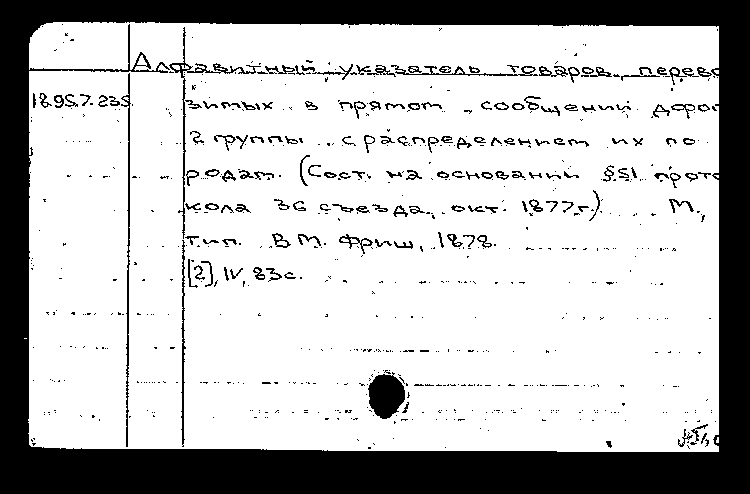 Алфавитный указатель товаров, перево
18.95.7.235. зимых в прямом сообщении дорог
2 группы с распределением их по
родам. (Сост. на основании §51 прото
кола 36 съезда, окт. 1877г.) М.,
тип. В.М. Фриш, 1878.
[2], IV, 83с.